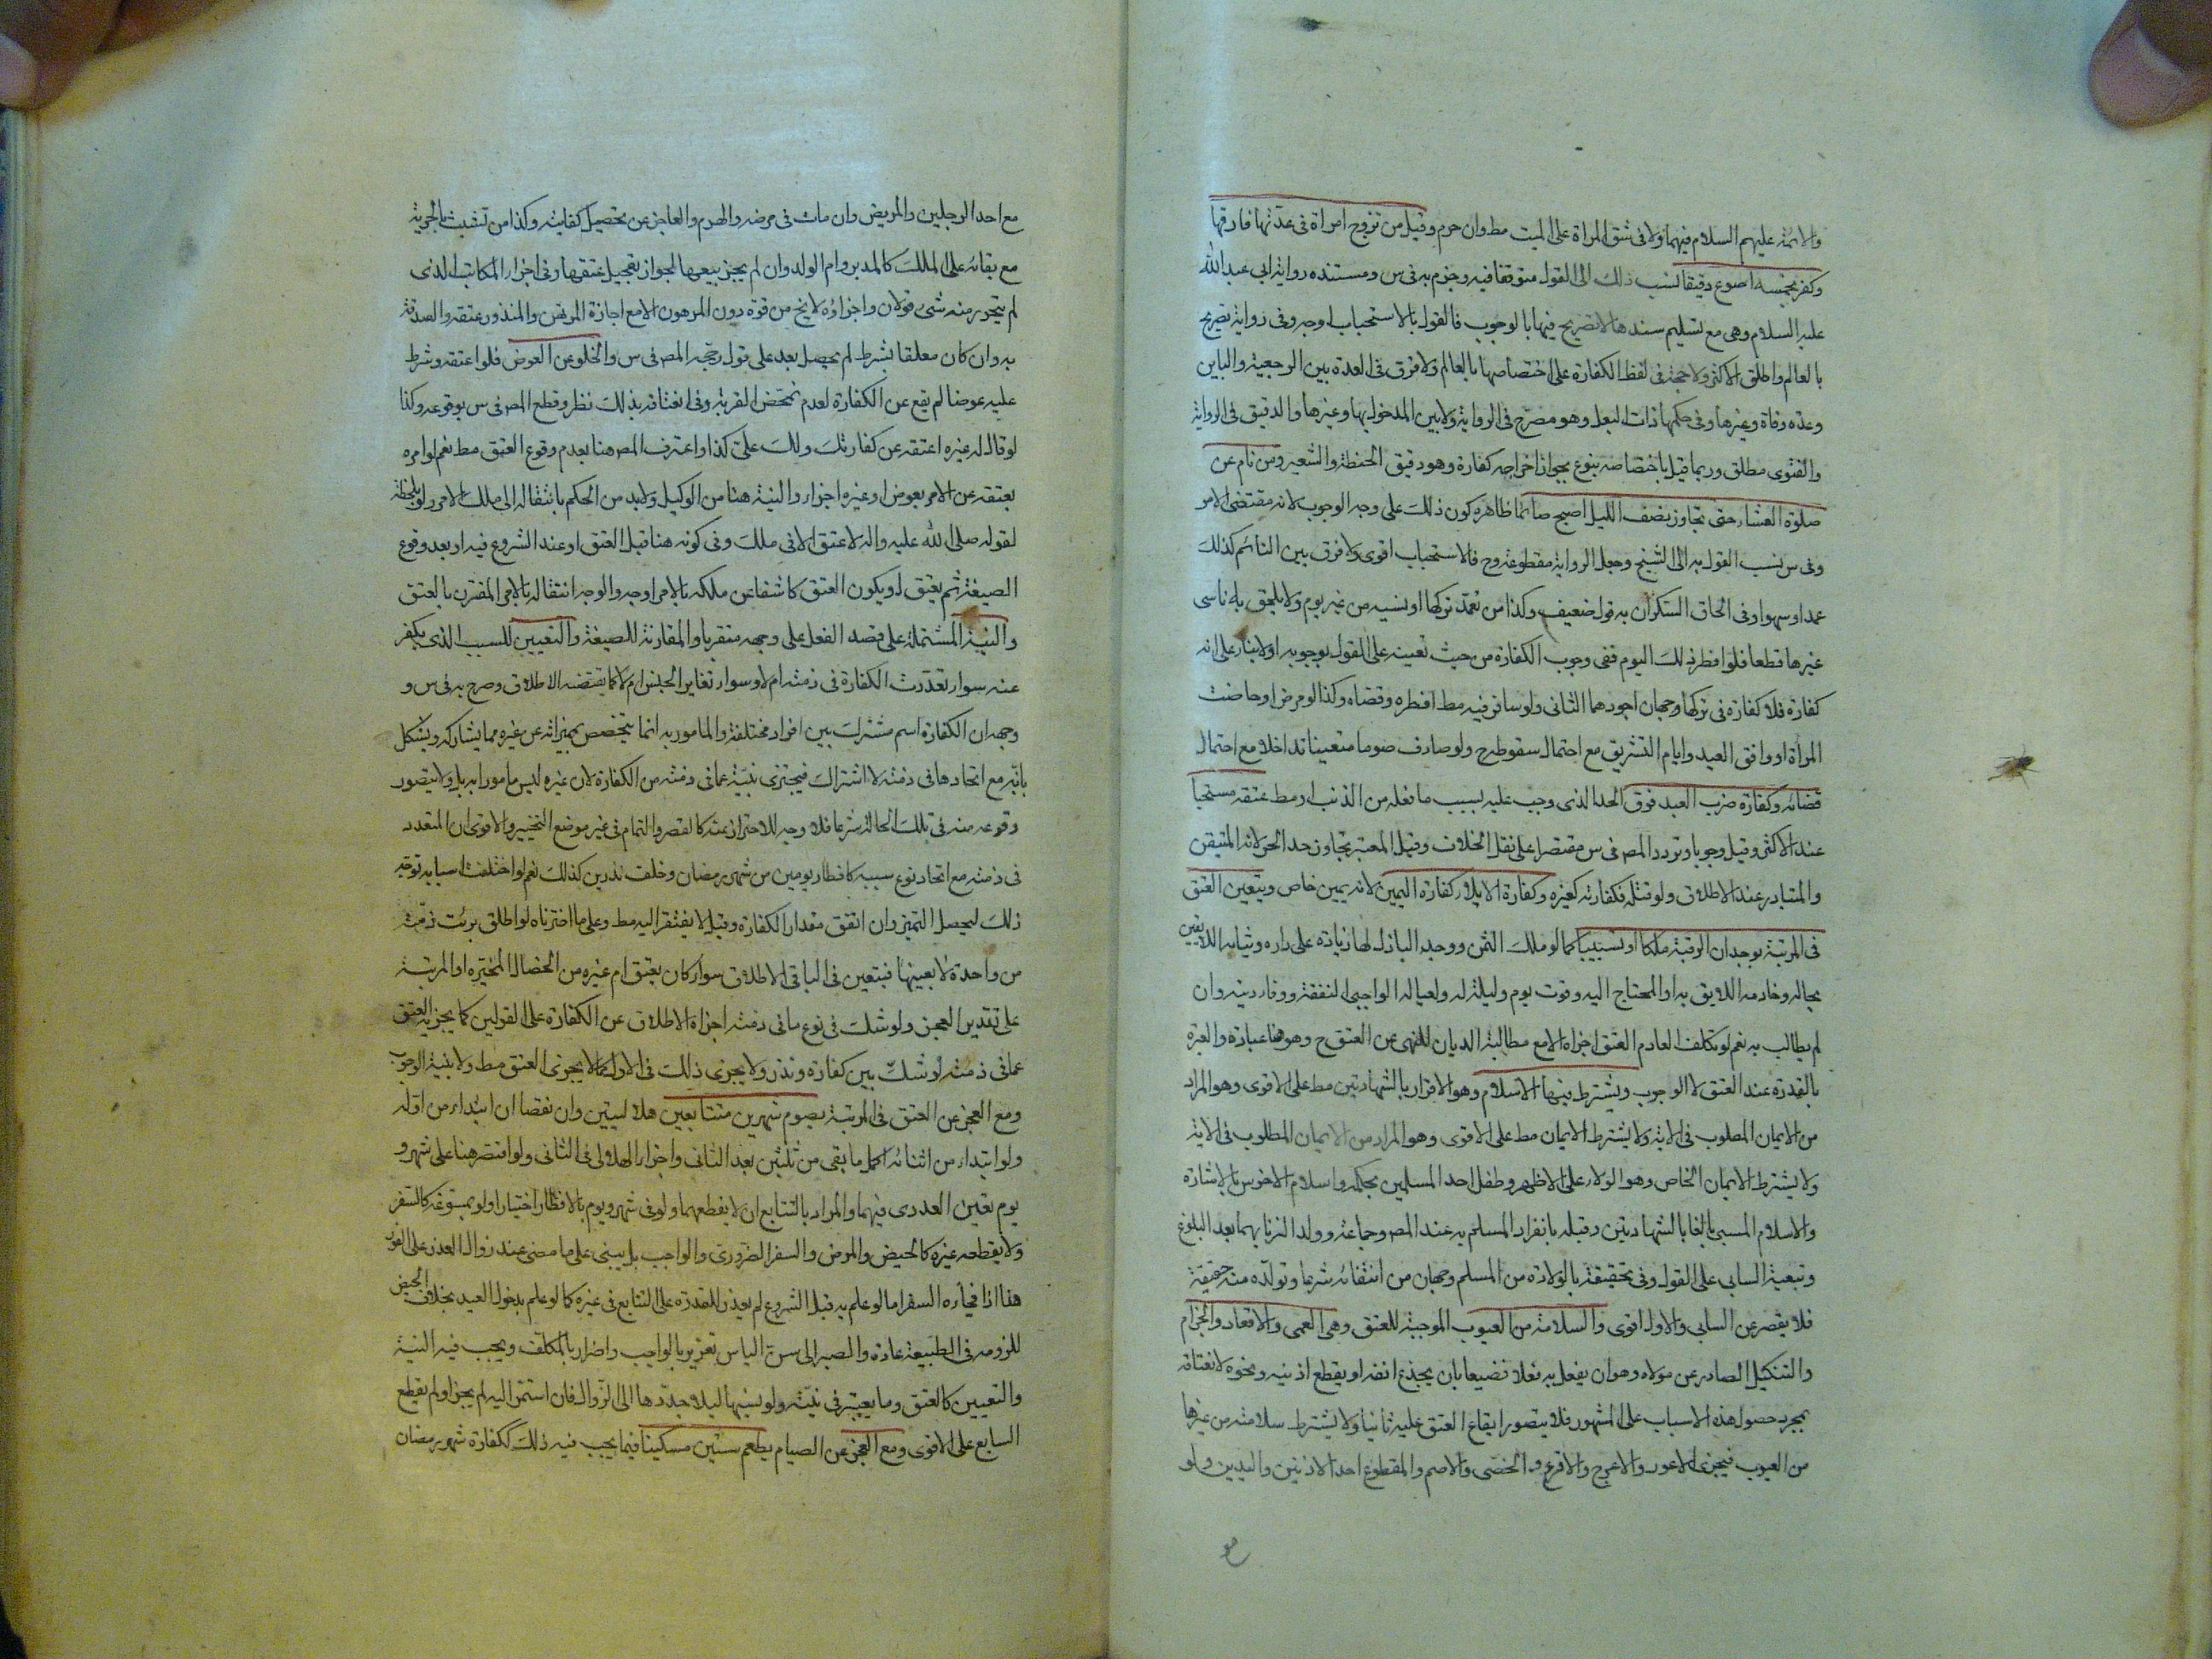 والائمة عليهم السلام فيهما ولا في شق المراة على الميت مط وان حرم وقيل من تزوج امراة في عدتها فارقها
وكفر بخمسة اصوع دقيقا نسب ذلك الى القول متوقفا فيه وجزم به في س ومستنده رواية ابي عبد الله
عليه السلام وهي مع تسليم سندها لا تصريح فيها بالوجوب فالقول بالاستحباب اوجه وفي رواية تصريح
بالعالم واطلق الاكثر ولا حجة في لفظ الكفارة على اختصاصها بالعالم ولا فرق في العدة بين الرجعية والباين
وعدة وفاة وغيرها وفي حكمها ذات البعل وهو مصرح في الرواية ولا بين المدخول بها وغيرها والدقيق في الرواية
والفتوى مطلق وربما قيل باختصاصه بنوع يجوز اخراجه كفارة وهو دقيق الحنطة والشعير ومن نام عن
صلوة العشاء حتى تجاوز نصف الليل اصبح صائما ظاهره كون ذلك على وجه الوجوب لانه مقتضى الامر
وفي س نسب القول به الى الشيخ وجعل الرواية مقطوعة وح فالاستحباب اقوى ولا فرق بين النائم كذلك
عمدا وسهوا وفي الحاق السكران به قول ضعيف وكذا من تعمد تركها او نسيه من غير نوم ولا يلحق به ناسي
غيرها قطعا فلو افطر ذلك اليوم ففي وجوب الكفارة من حيث تعينه على القول بوجوبه او لا بناء على انه
كفارة فلا كفارة في تركها وجهان اجودهما الثاني ولو سافر فيه مط افطره وقضاه وكذا لو مرض او حاضت
المراة او وافق العيد وايام التشريق مع احتمال سقوطه ح ولو صادف صوما متعينا تداخلا مع احتمال
قضائه وكفارة ضرب العبد فوق الحد الذي وجب عليه بسبب ما فعله من الذنب او مط عتقه مستحبا
عند الاكثر وقيل وجوبا وتردد المص في س مقتصرا على نقل الخلاف وقيل المعتبر تجاوز حد الحر لانه المتيقن
والمتبادر عند الاطلاق ولو قتله فكفارته كغيره وكفارة الايلاء كفارة اليمين لانه يمين خاص ويتعين العتق
في المرتبة بوجدان الرقبة ملكا او تسبيبا كما لو ملك الثمن ووجد الباذل لها زيادة على داره وثيابه اللايقين
بحاله وخادمه اللايق به او المحتاج اليه وقوت يوم وليلة له ولعياله الواجبي النفقة ووفاء دينه وان
لم يطالب به نعم لو تكلف العادم العتق اجزاه الا مع مطالبة الديان للنهي عن العتق ح وهو هنا عبادة والعبرة
بالقدرة عند العتق لا الوجوب ويشترط فيها الاسلام وهو الاقرار بالشهادتين مط على الاقوى وهو المراد
من الايمان المطلوب في الاية ولا يشترط الايمان مط على الاقوى وهو المراد من الايمان المطلوب في الاية
ولا يشترط الايمان الخاص وهو الولاء على الاظهر وطفل احد المسلمين بحكمه واسلام الاخرس بالاشارة
والاسلام المسبي بالغا بالشهادتين وقبله بانفراد المسلم به عند المص وجماعة وولد الزنا بهما بعد البلوغ
وتبعية السابي على القول وفي تحققة بالولادة من المسلم وجهان من انتفائه شرعا وتولده منه حقيقة
فلا يقصر عن السابي والاول اقوى والسلامة من العيوب الموجبة للعتق وهي العمى والاقعاد والجذام
والتنكيل الصادر عن مولاه وهو ان يفعل به فعلا فضيعا بان يجذع انفه او يقطع اذنيه ونحوه لانعتاقه
بمجرد حصول هذه الاسباب على المشهور فلا يتصور ايقاع العتق عليه ثانيا ولا يشترط سلامته من غيرها
من العيوب فيجزي الاعور والاعرج والاقرع والخصي والاصم والمقطوع احد الاذنين واليدين ولو
مع احد الرجلين والمريض وان مات في مرضه والهرم والعاجز عن تحصيل كفايته وكذا من تشبث بالحرية
مع بقائه على الملك كالمدبر وام الولد وان لم يجز بيعها لجواز تعجيل عتقها وفي اجزاء المكاتب الذي
لم يتحرر منه شيء قولان واجزاؤه لا يخ من قوة دون المرهون الا مع اجازة المرتهن والمنذور عتقه والصدقة
به وان كان معلقا بشرط لم يحصل بعد على قول رجحه المص في س والخلو عن العوض فلو اعتقه وشرط
عليه عوضا لم يقع عن الكفارة لعدم تمحض القربة وفي انعتاقه بذلك نظر وقطع المص في س بوقوعه وكذا
لو قال له غيره اعتقه عن كفارتك ولك علي كذا واعترف المص هنا بعدم وقوع العتق مط نعم لو امره
بعتقه عن الامر بعوض او غيره اجزاء والنية هنا من الوكيل ولا بد من الحكم بانتقاله الى ملك الامر ولو لحظة
لقوله صلى الله عليه واله لا عتق الا في ملك وفي كونه هنا قبل العتق او عند الشروع فيه او بعد وقوع
الصيغة ثم يعتق او يكون العتق كاشفا عن ملكه بالامر اوجه والوجه انتقاله بالامر المقترن بالعتق
والنية المشتملة على قصد الفعل على وجهه متقربا والمقارنة للصيغة والتعيين للسبب الذي يكفر
عنه سواء تعددت الكفارة في ذمته ام لا وسواء تغاير الجنس ام لا كما يقتضيه الاطلاق وصرح به في س و
وجهه ان الكفارة اسم مشترك بين افراد مختلفة والمامور به انما يتخصص بمميزاته عن غيره مما يشاركه ويشكل
بانه مع اتحادها في ذمته لا اشتراك فيجتزي بنية عما في ذمته من الكفارة لان غيره ليس مامورا به بل ولا يتصور
وقوعه منه في تلك الحالة شرعا فلا وجه للاحتراز عنه كالقصر والتمام في غير موضع التخيير والاقوى ان المتعدد
في ذمته مع اتحاد نوع سببه كافطار يومين من شهر رمضان وخلف نذرين كذلك نعم لو اختلفت اسبابه توجه
ذلك ليحصل التميز وان اتفق مقدار الكفارة وقيل لا يفتقر اليه مط وعلى ما اخترناه لو اطلق برئت ذمته
من واحدة لا بعينها فيتعين في الباقي الاطلاق سواء كان بعتق ام غيره من الخصال المخيرة او المرتبة
على تقدير العجز ولو شك في نوع ما في ذمته اجزاه الاطلاق عن الكفارة على القولين كما يجزيه العتق
عما في ذمته لو شك بين كفارة ونذر ولا يجزي ذلك في الاول كما لا يجزي العتق مط ولا بنية الوجوب
ومع العجز عن العتق في المرتبة يصوم شهرين متتابعين هلاليين وان نقصا ان ابتداء من اوله
ولو ابتداء من اثنائه اكمل ما بقي من ثلثين بعد الثاني واجزاء الهلالي في الثاني ولو اقتصر هنا على شهر و
يوم تعين العددي فيهما والمراد بالتتابع ان لا يقطعهما ولو في شهر ويوم بالافطار اختيارا ولو بمسوغه كالسفر
ولا يقطعه غيره كالحيض والمرض والسفر الضروري والواجب بل يبنى على ما مضى عند زوال العذر على الفور
هذا اذا فجاءه السفر اما لو علم به قبل الشروع لم يعذر للقدرة على التتابع في غيره كما لو علم بدخول العيد بخلاف الحيض
للزومه في الطبيعة عادة والصبر الى سن الياس تغرير بالواجب واضرار بالمكلف ويجب فيه النية
والتعيين كالعتق وما يعتبر في نيته ولو نسيها ليلا جددها الى الزوال فان استمر اليه لم يجز ولم يقطع
التتابع على الاقوى ومع العجز عن الصيام يطعم ستين مسكينا فيما يجب فيه ذلك ككفارة شهر رمضان